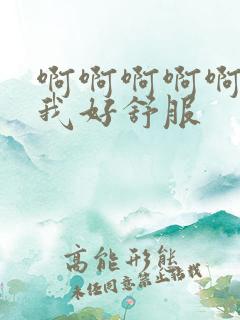 啊啊啊啊啊
我好舒服
高能形态
未经同意禁止招我